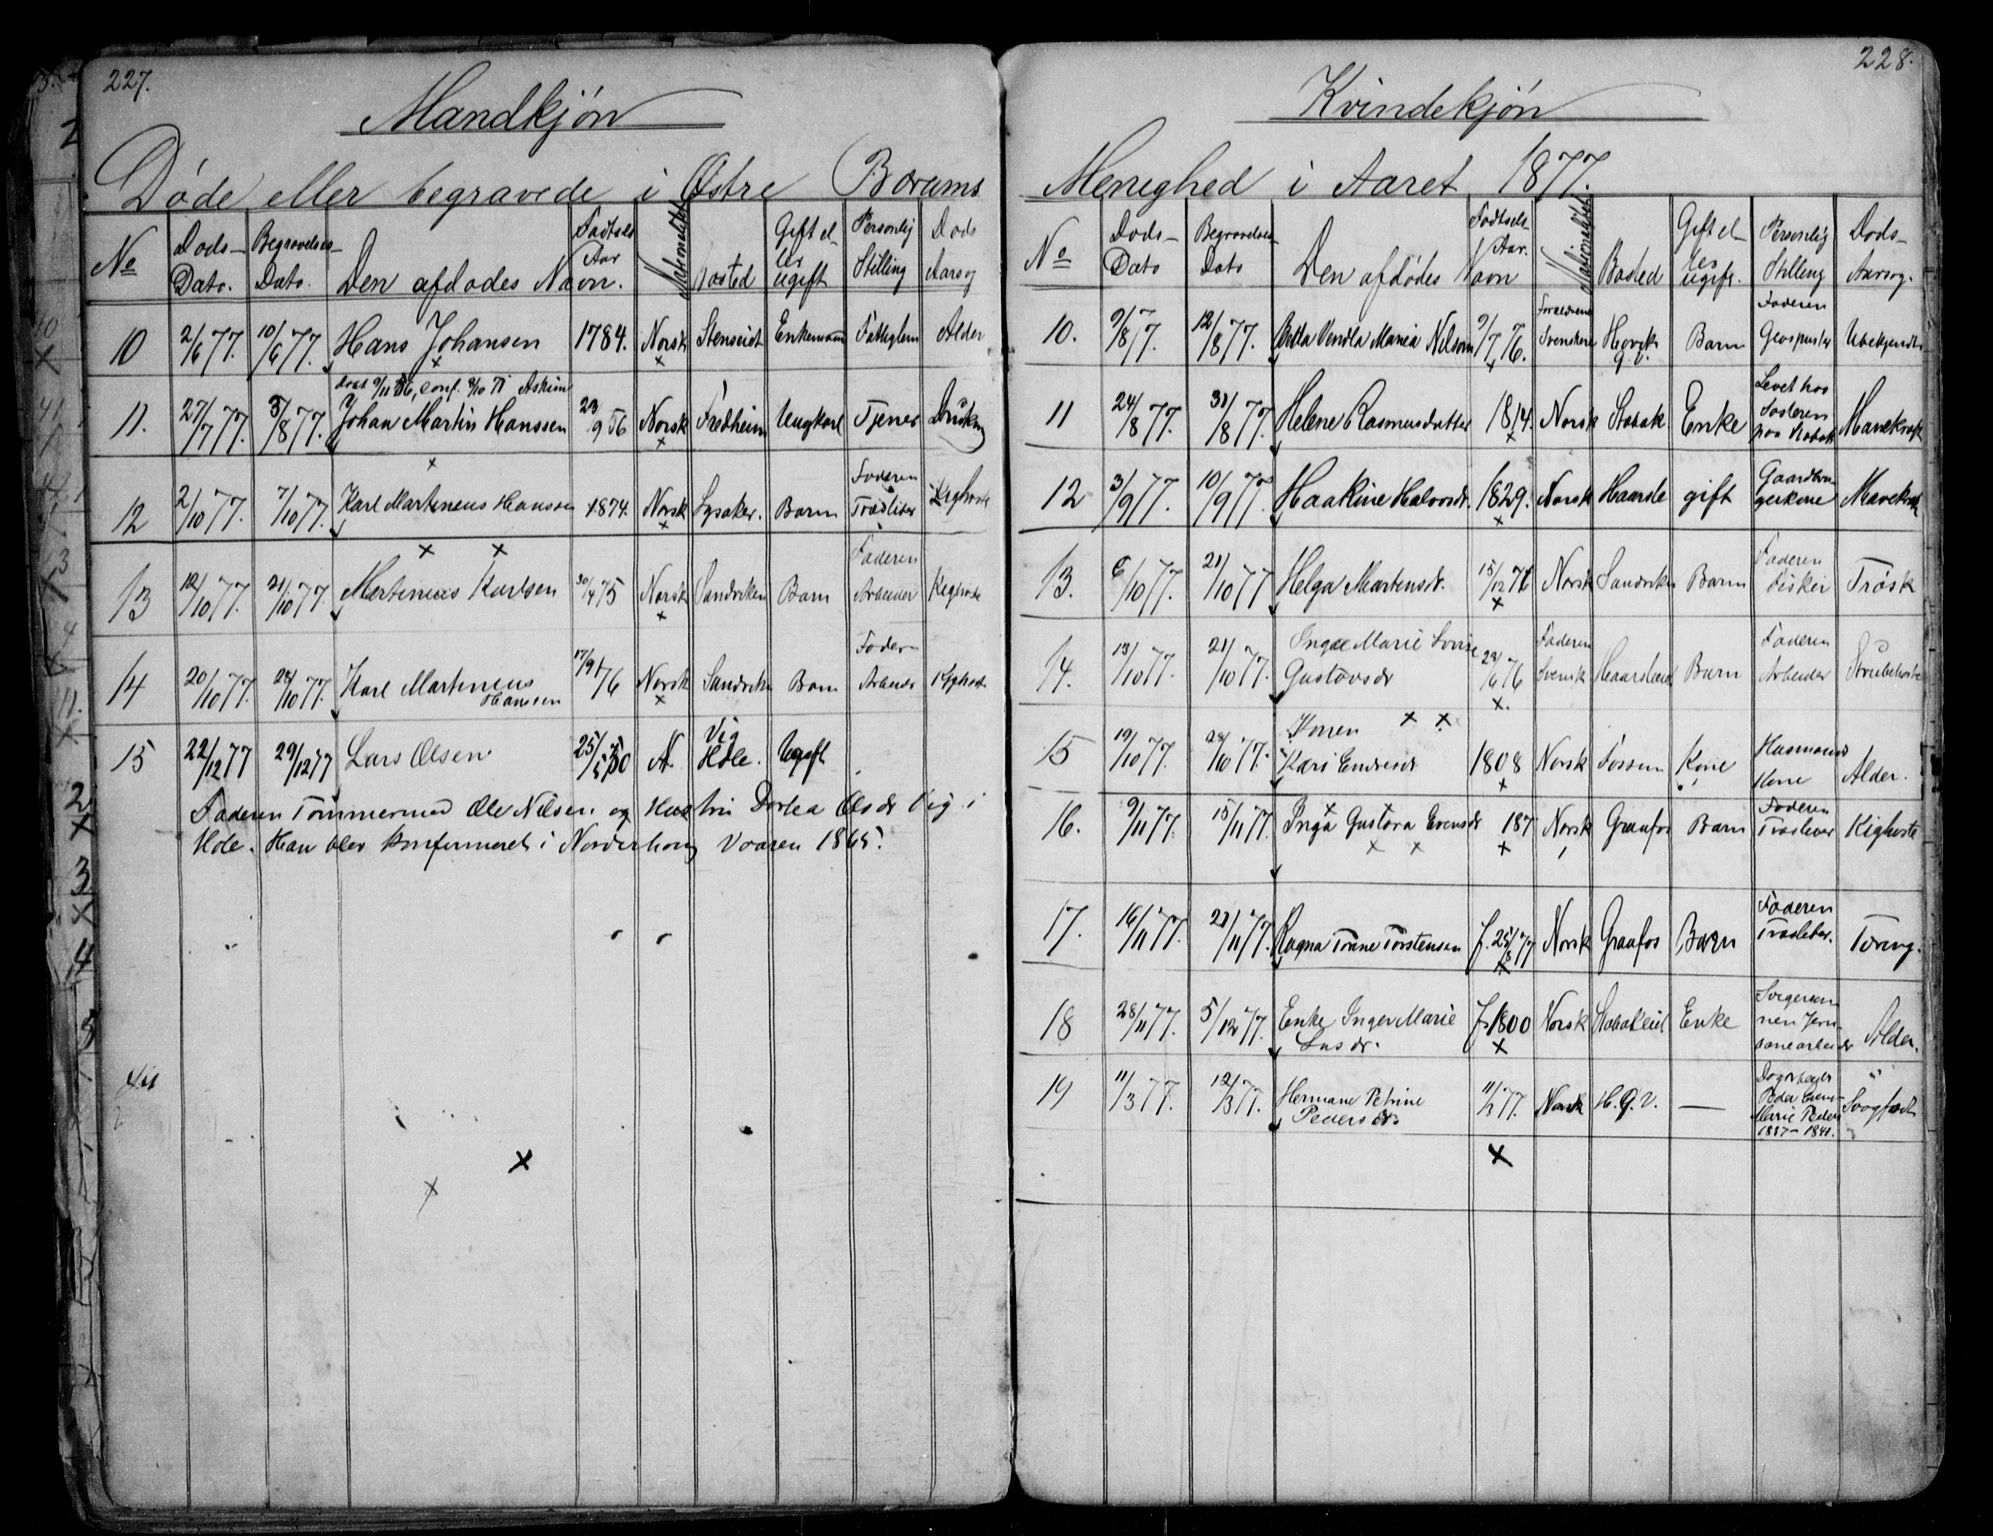 227.
Mandkjøn
Døde eller begravede i Østre Bærums
No Døds-Dato. Begravelses-Dato. Den afdødes Navn. Fødsels Aar Nationalitet Bosted Gift eller ugift Personlig Stilling Døds Aarsag
10 2/6 77. 10/6 77. Hans Johansen 1784. Norsk Enkemand Fattiglem Alder
11. 27/7 77. 5/8 77. Johan Martin Hanssen 23/9 56 Norsk Fredheim Ungkarl Tjener
12 2/10 77. 7/10 77. Karl Martineus Hanssen 1874. Norsk Lysaker. Barn Faderen Kighoste
13 12/10 77. 21/10 77. Martineus Karlsen 30/4 75 Norsk Sandviken Barn Faderen Arbeider Kighoste
14 20/10 77. 28/10 77. Karl Martineus Hanssen 17/9 76 Norsk Sandviken Barn Fader Arbeider Kighoste
15 22/12 77 29/12 77 Lars Olsen 25/5 50 N. Vig Hole. Ugift
Faderen Tømmermd Ole Nilsen og Hustru Dorthea Olsdr Vig i
Hole. Han blev konfirmeret i Norderhoug Vaaren 1865.
228.
Kvindekjøn
Menighed i Aaret 1877.
No Døds-Dato Begravelses-Dato Den afdødes Navn Fødsels-Aar. Nationalitet Bosted Gift eller ugift. Personlig Stilling Døds-Aarsag.
10. 9/8 77. 12/8 77. Maria Nilsen 9/7 76. Forældrene Svenske Høvik G.V. Barn Faderen Glaspuster Ubekjendt
11 24/8 77. 31/8 77. Helene Rasmusdatter 1814. Norsk Stabæk Enke Levet hos
12 3/9 77. 10/9 77 Haakine Halvorsdr. 1829. Norsk gift Mavekræft
13. 6/10 77. 21/10 77 Helga Martensdr. 15/12 76 Norsk Sandviken Barn Faderen Fisker Trøsk
14. 13/10 77. 21/10 77. Ingæ Marie Lovise Gustavsdr 28/6 76 Faderen Svensk Barn Faderen Arbeider Strubehoste
15 19/10 77. 28/10 77. Konen Kari 1808 Norsk Fossum Kone Husmands Kone Alder.
16. 9/11 77. 15/11 77. Inga Gustava Evensdr 187 Norsk Granfos Barn Faderen Kighoste
17. 16/11 77. 21/11 77. Ragna Trine Torstensen f. 25/3 77 Norsk Granfos Barn Faderen Træsliber. Tæring.
18 28/11 77. 5/12 77. Enke Inger Marie Larsdr. f. 1800 Norsk Enke Svigersønnen Jernbanearbeider Alder.
19 11/3 77. 12/3 77. Hermane Petrine Pedersdr. 11/3 77. Norsk H.G.V. —